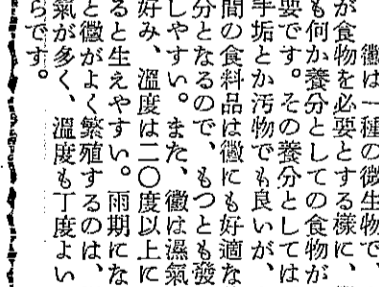 黴は一種の微生物で、
が食物を必要とする樣に、
も何か養分としての食物が
要です。その養分としては
手垢とか汚物でも良いが、
間の食料品は黴にも好適な
分となるので、もつとも發
しやすい。また、黴は濕氣
好み、溫度は二〇度以上に
ると生えやすい。雨期にな
と黴がよく繁殖するのは、
氣が多く、溫度も丁度よい
らです。